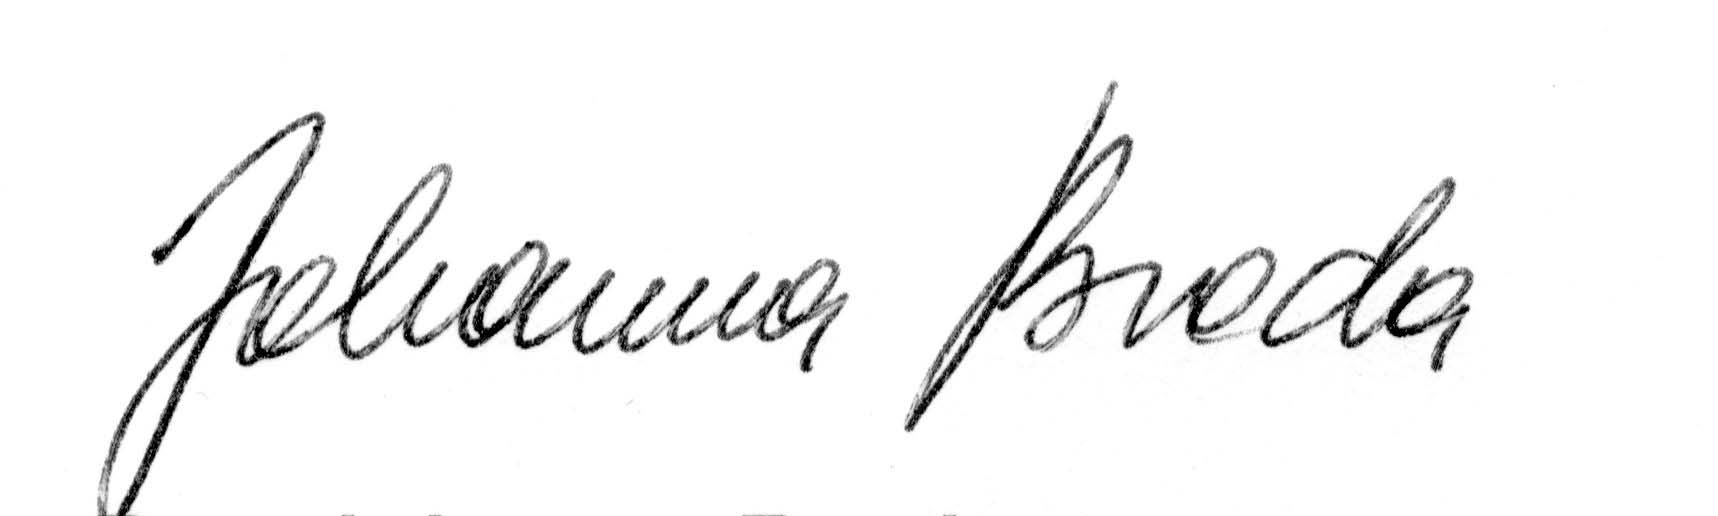 Johanna Broda